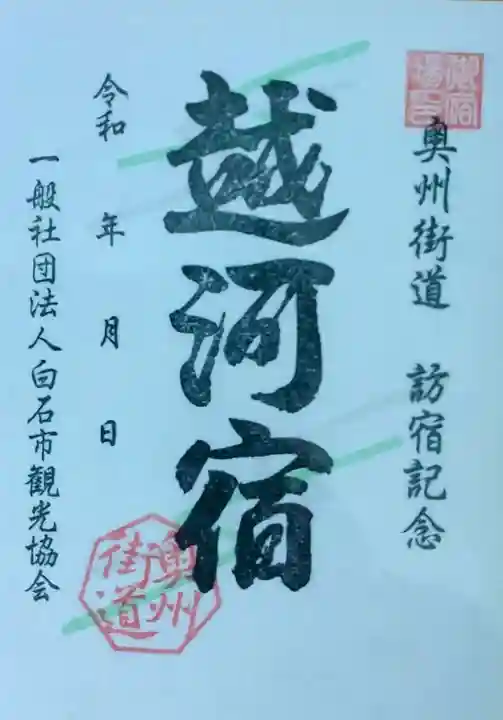 奥州街道 訪宿記念
御宿場印
越河宿
奥州街道
令和 年 月 日
一般社団法人白石市観光協会